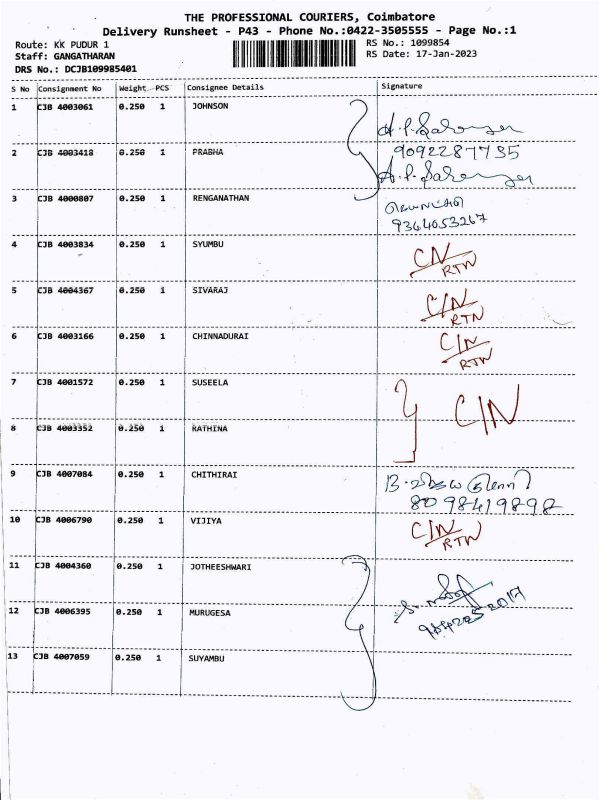 THE PROFESSIONAL COURIERS, Coimbatore
Delivery Runsheet - P43 - Phone No.:0422-3505555 - Page No.:1
Route: KK PUDUR 1
RS No.: 1099854
Staff: GANGATHARAN
RS Date: 17-Jan-2023
DRS No.: DCJB109985401
S No Consignment No Weight PCS Consignee Details Signature
1 CJB 4003061 0.250 1 JOHNSON
2 CJB 4003418 0.250 1 PRABHA 9092287735
3 CJB 4000807 0.250 1 RENGANATHAN
9364053267
4 CJB 4003834 0.250 1 SYUMBU C/N
RTN
5 CJB 4004367 0.250 1 SIVARAJ C/N
RTN
6 CJB 4003166 0.250 1 CHINNADURAI C/N
RTN
7 CJB 4001572 0.250 1 SUSEELA C/N
8 CJB 4003352 0.250 1 RATHINA
9 CJB 4007084 0.250 1 CHITHIRAI
8098419898
10 CJB 4006790 0.250 1 VIJIYA C/N
RTN
11 CJB 4004360 0.250 1 JOTHEESHWARI
12 CJB 4006395 0.250 1 MURUGESA
13 CJB 4007059 0.250 1 SUYAMBU